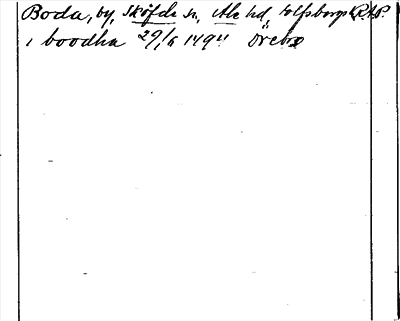 Boda, by, Sköfde sn, Ale hd, Elfsborgs l. RAP.
i boodha 29/6 1494 Örebro